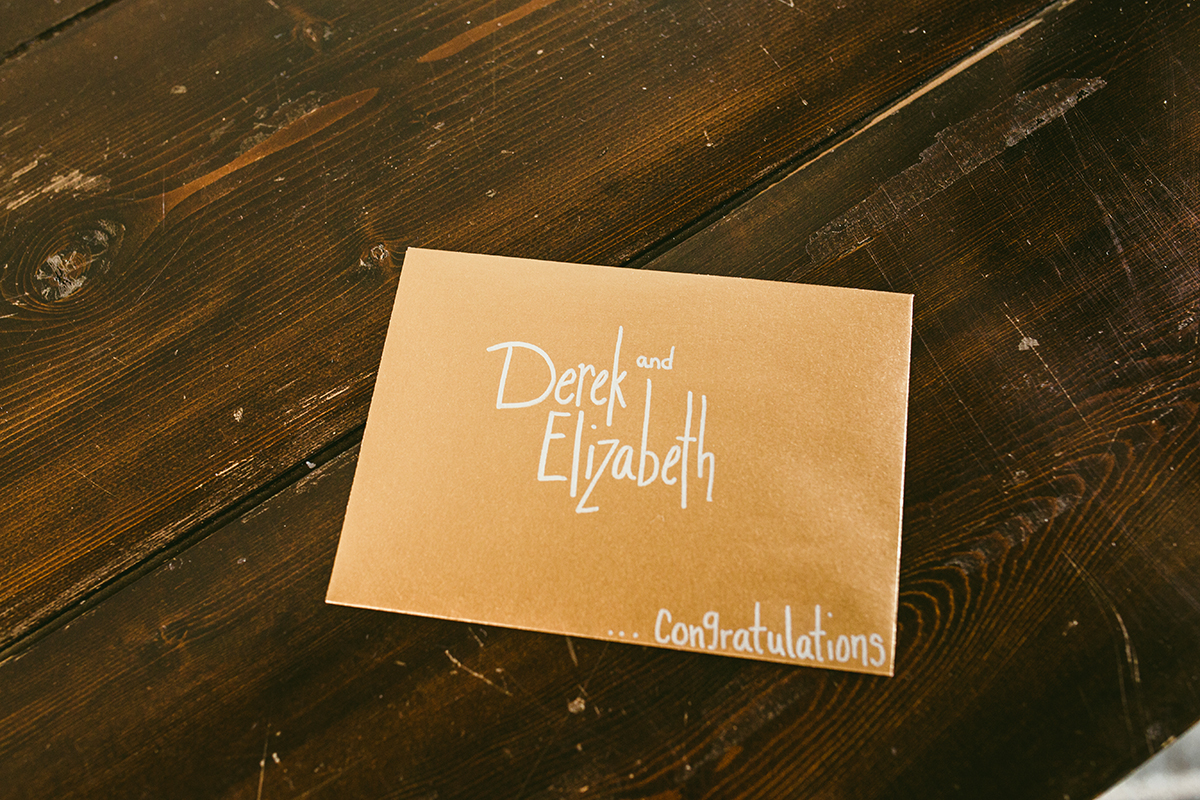 Derek and
Elizabeth
... Congratulations